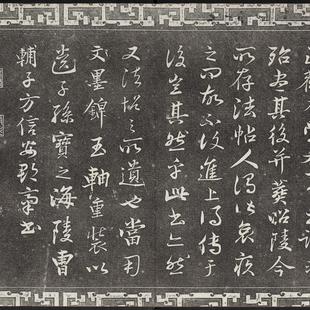 殆盡其後并葬昭陵今
所存法帖人哀疾
之問故不以進上得傳于
後豈其然乎此書然
又法帖之所遺也當用
文墨錦玉軸重裝以
遺子孫寶之海陵曹
輔子方信安郡齋書